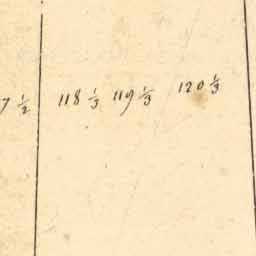 7 1/2 118 1/3 119 1/3 120 1/3